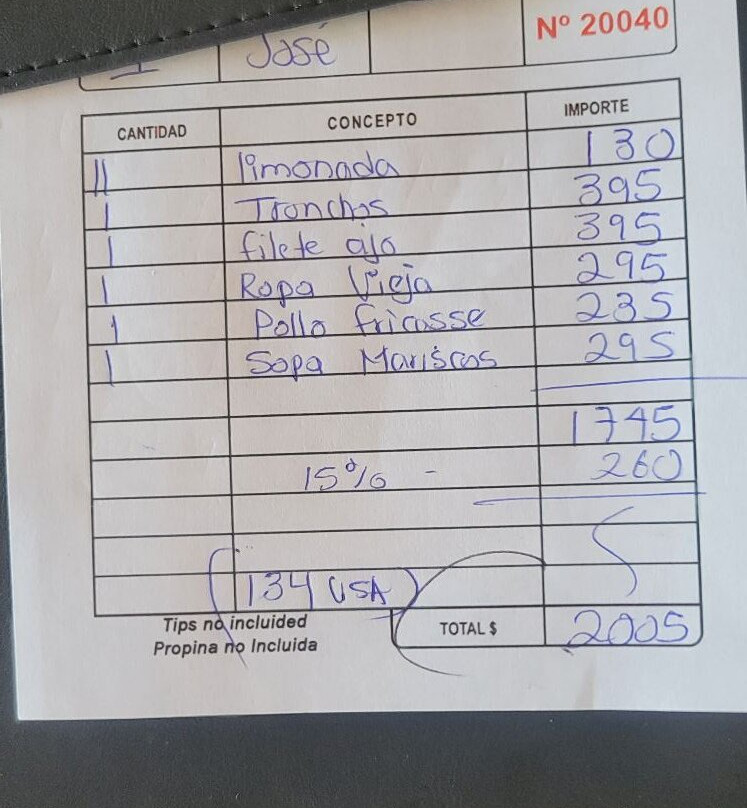 José
Nº 20040
CANTIDAD CONCEPTO IMPORTE
11 limonada 130
1 Tronchos 395
1 filete ajo 395
1 Ropa Vieja 295
1 Pollo fricasse 235
1 Sopa Mariscos 295
1745
15% - 260
(134 USA)
Tips no incluided
Propina no Incluida
TOTAL $ 2005